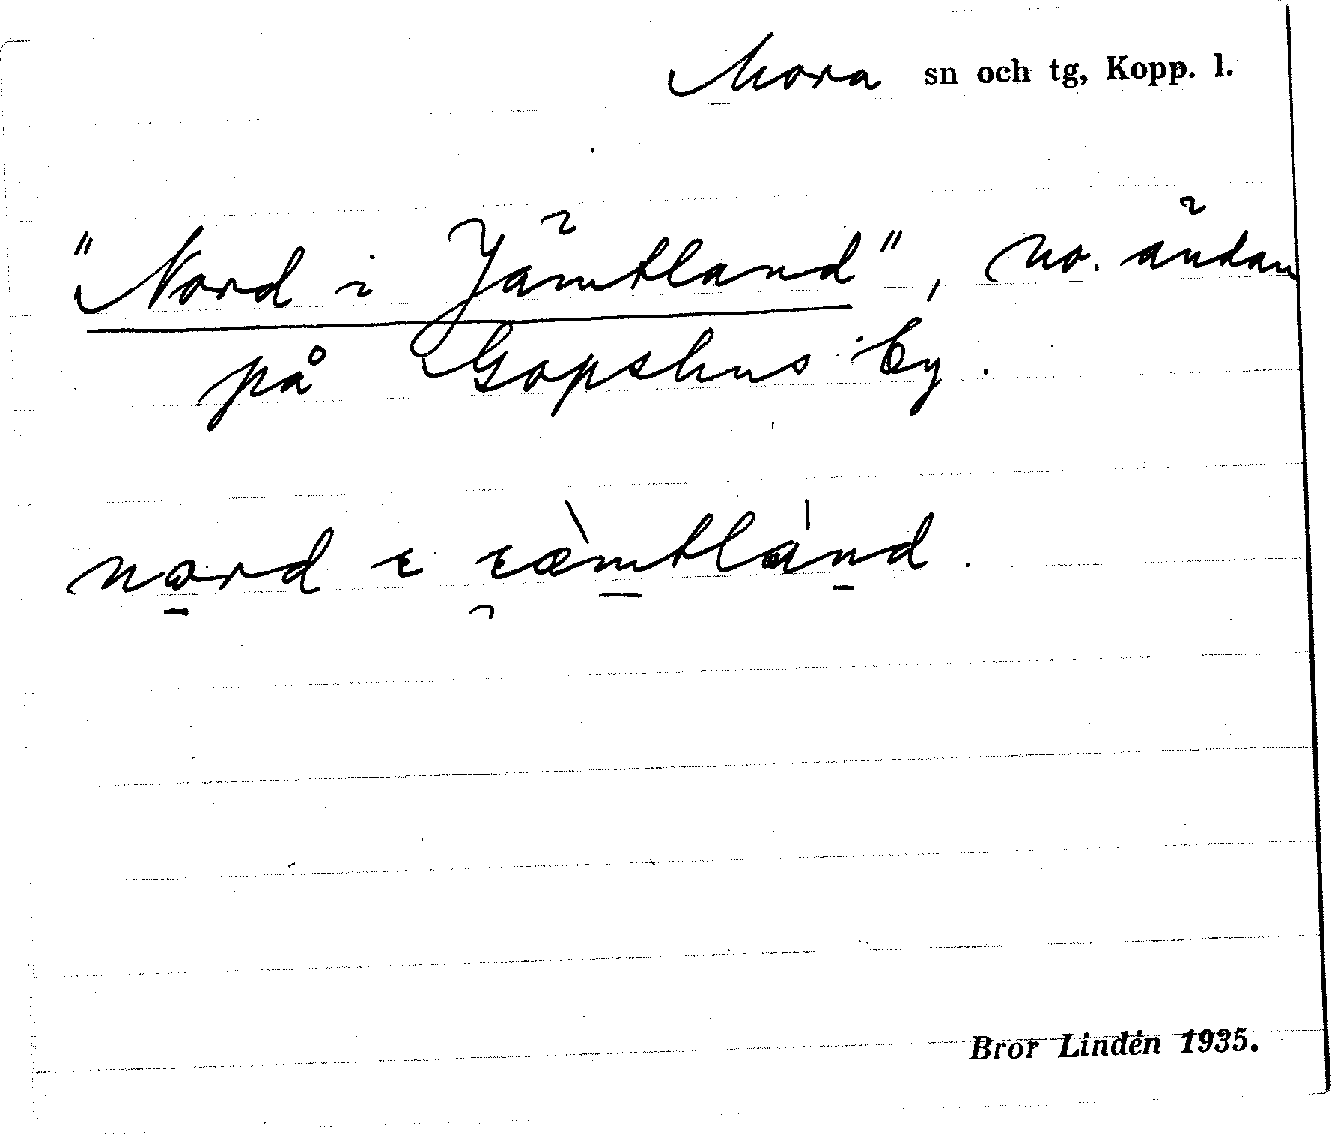 Mora sn och tg, Kopp. l.
"Nord i Jämtland", no. ändan
på Gopshus by.
nord ɩ ɩæ̀mtlánd.
Bror Lindén 1935.